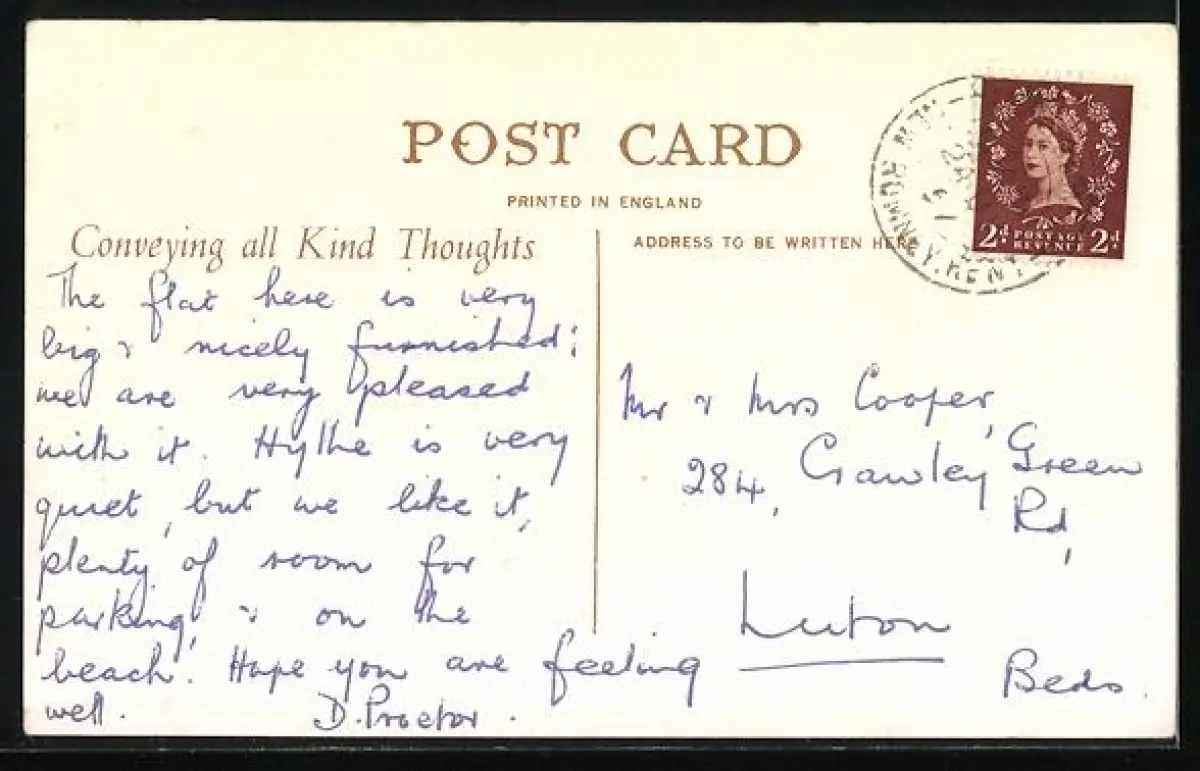 POST CARD
PRINTED IN ENGLAND
Conveying all Kind Thoughts
The flat here is very
big & nicely furnished;
we are very pleased
with it. Hythe is very
quiet, but we like it,
plenty of room for
parking, & on the
beach. Hope you are feeling
well. D. Proctor.
ADDRESS TO BE WRITTEN HERE
Mr & Mrs Cooper,
284, Crawley Green
Rd,
Luton
Beds.
NEW ROMNEY. KENT
2d POSTAGE REVENUE 2d